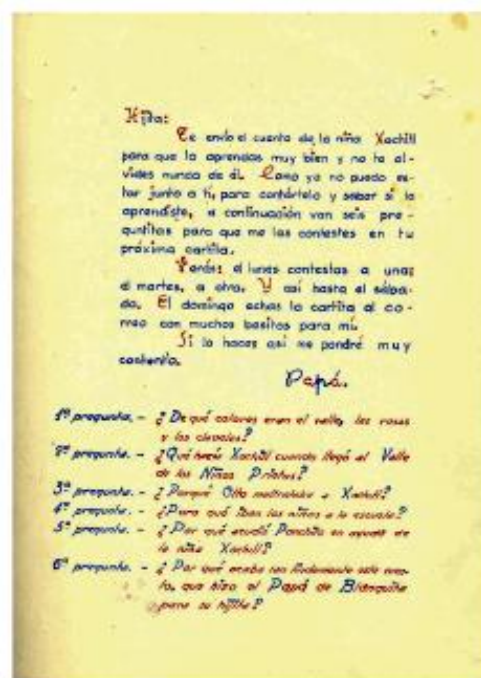 Hijita:
Te envío el cuento de la niña Xochitl
para que lo aprendas muy bien y no te ol-
vides nunca de él. Como yo no puedo es-
tar junto a ti, para contártelo y saber si lo
aprendiste, a continuación van seis pre-
guntitas para que me las contestes en tu
próxima cartita.
Verás: el lunes contestas a una;
el martes, a otra. Y así hasta el sába-
do. El domingo echas la cartita al co-
rreo con muchos besitos para mí.
Si lo haces así me pondré muy
contento.
Papá.
1ª pregunta. - ¿De qué colores eran el valle, las rosas
y los claveles?
2ª pregunta. - ¿Qué hacía Xochitl cuando llegó al Valle
de los Niños Prietos?
3ª pregunta. - ¿Porqué Otto maltrataba a Xochitl?
4ª pregunta. - ¿Para qué iban los niños a la escuela?
5ª pregunta. - ¿Por qué acudió Panchito en ayuda de
la niña Xochitl?
6ª pregunta. - ¿Por qué acaba tan lindamente este cuen-
to, que hizo el Papá de Blanquita
para su hijita?